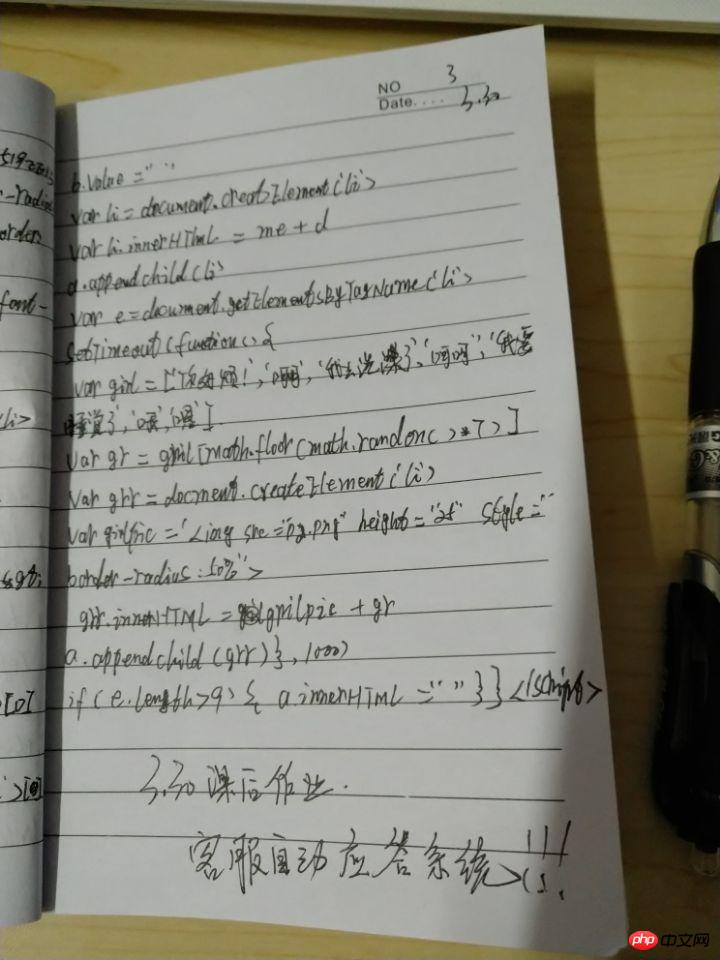 NO 3
Date.... 3.30
b.value =" "
var li = document.creatElement('li')
var li.innerHTML = me + d
a.appendchild(li)
var e = document.getElementsByTagName('li')
SetTimeout(function(){
var girl = ['
'我去洗澡了', '呵呵', '我要
睡觉了',
var gr = gril [math.floor(math.randon()*7)]
Var grr = docment.createElement('li')
Var girlpic = '<img src="p2.png" height="25" style="
border-radius:50%">
grr.innerHTML = grilpic + gr
a.appendchild(grr)}, 1000)
if(e.length>9) { a.innerHTML =" "}}</script>
3.30 课后作业.
客服自动应答系统
font-
border
-radiu
li>
[0]
php 中文网